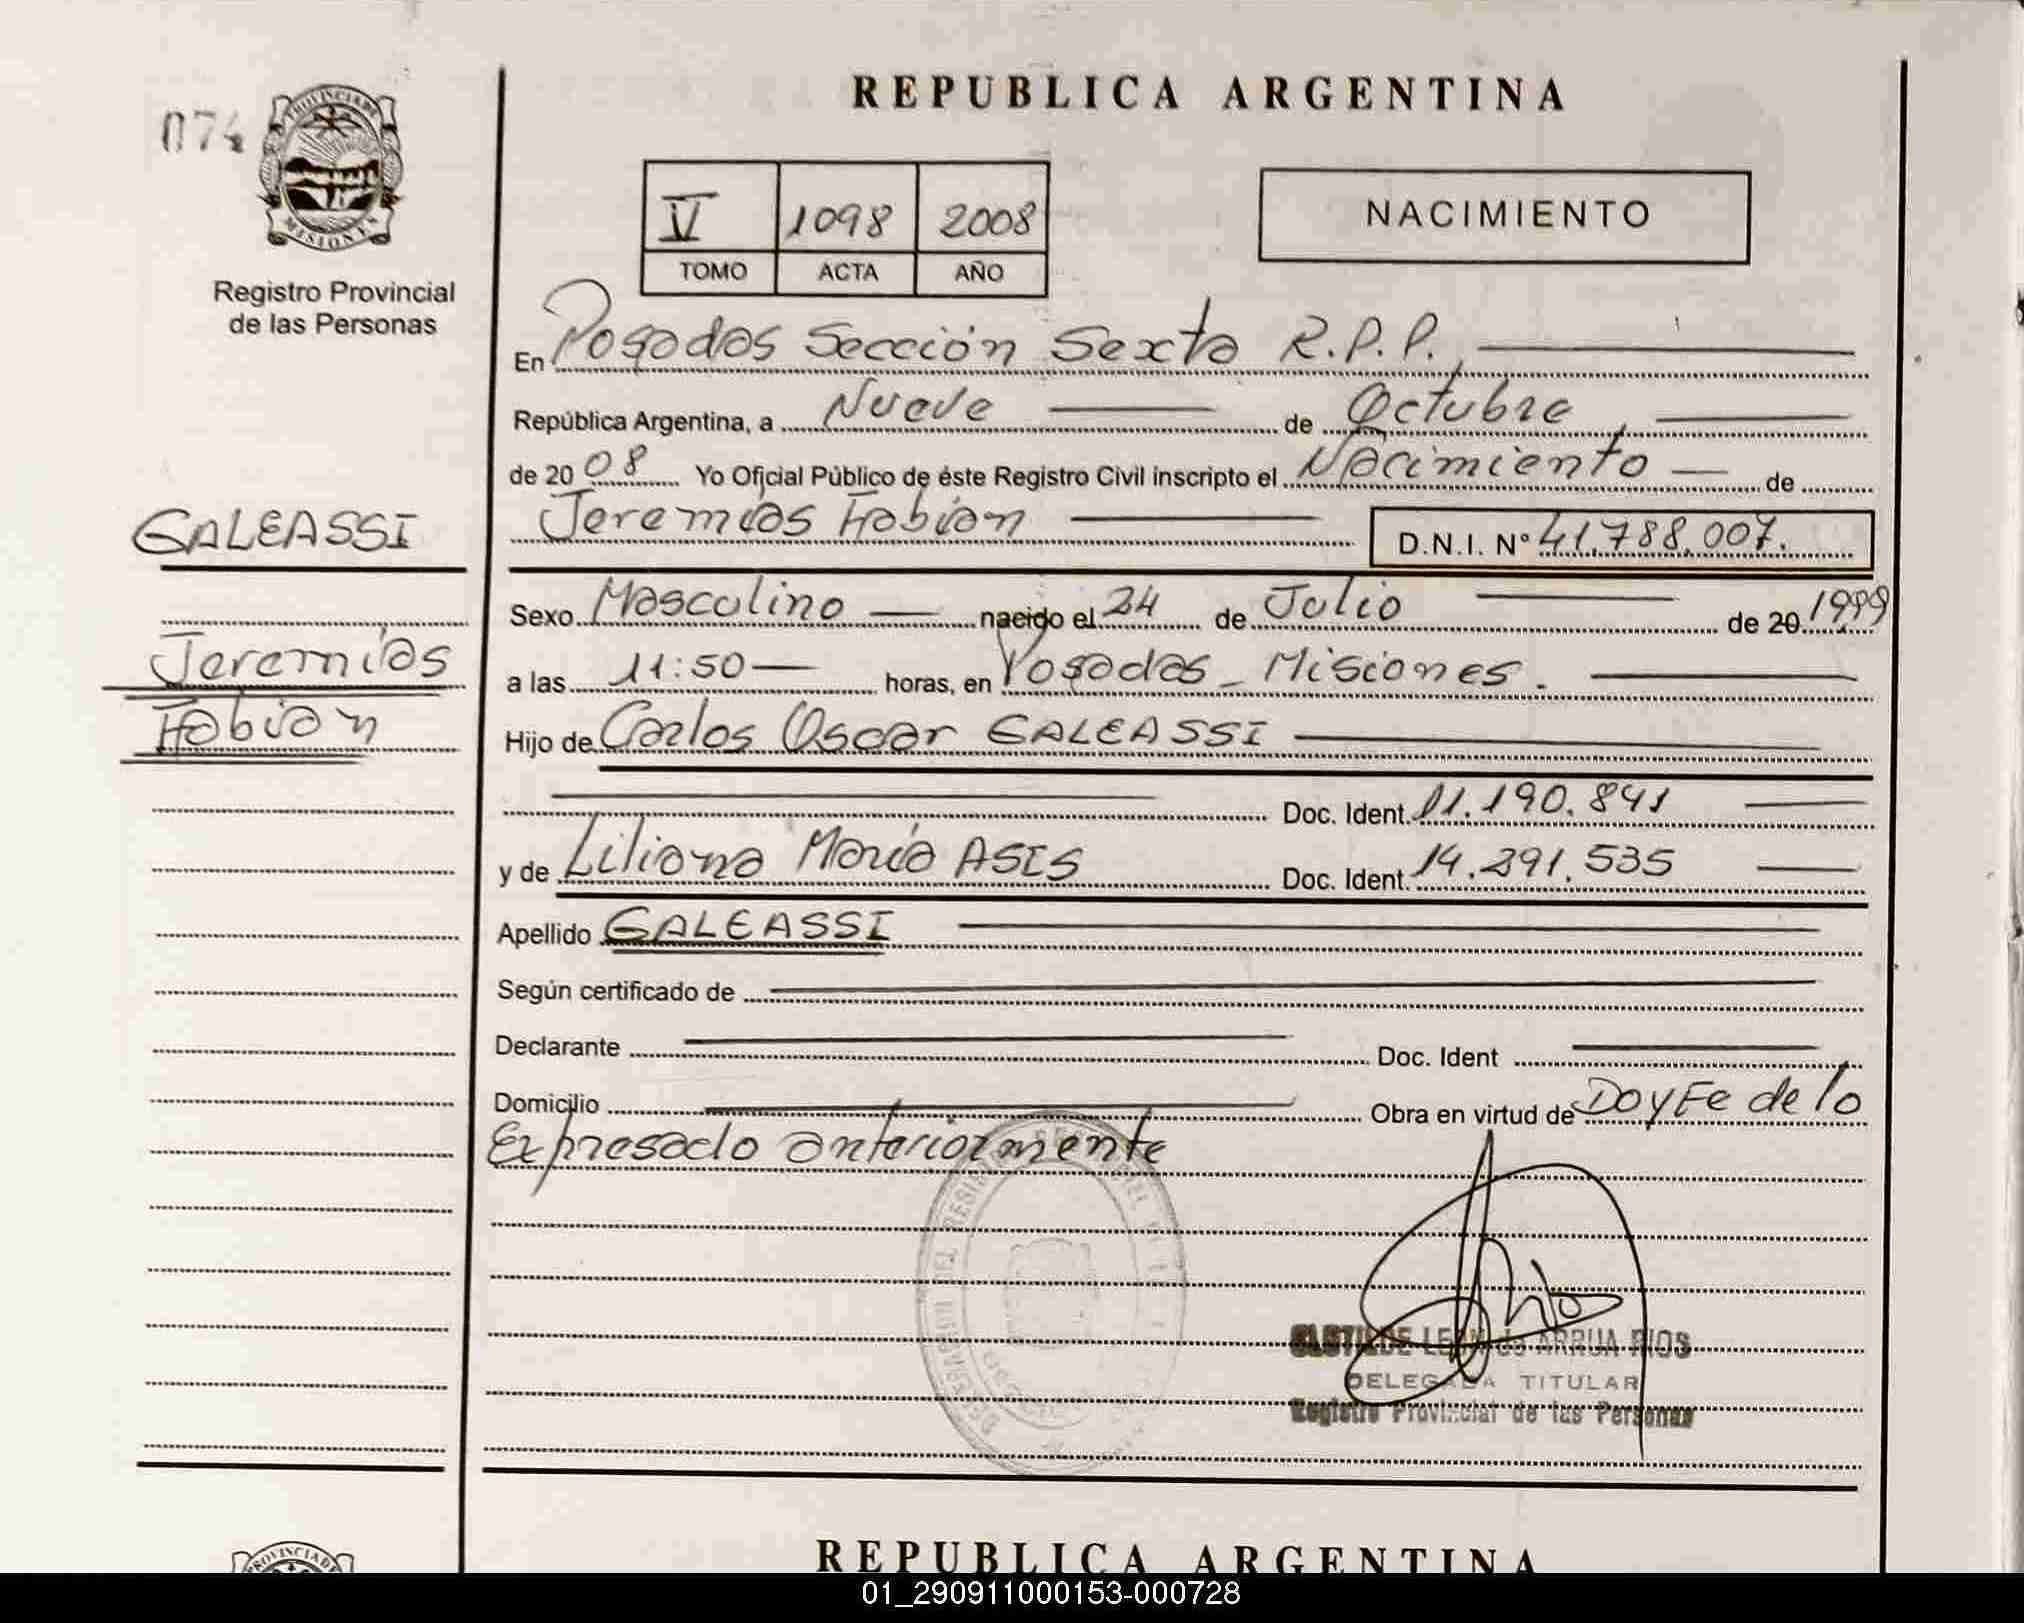 REPUBLICA ARGENTINA
074
PROVINCIA DE
MISIONES
Registro Provincial
de las Personas
V 1098 2008
TOMO ACTA AÑO
NACIMIENTO
En Posadas Sección Sexta R.P.P.,
República Argentina, a Nueve de Octubre,
de 20 08 Yo Oficial Público de éste Registro Civil inscripto el Nacimiento de
Jeremías Fabian D.N.I. N° 41.788.007.
GALEASSI
Jeremías
Fabian
Sexo Masculino nacido el 24 de Julio de 20 1999
a las 11:50 horas, en Posadas - Misiones.
Hijo de Carlos Oscar GALEASSI
Doc. Ident. 11.190.841
y de Liliana María ASIS Doc. Ident. 14.291.535
Apellido GALEASSI
Según certificado de
Declarante Doc. Ident
Domicilio Obra en virtud de Doy Fe de lo
Expresado anteriormente
CLOTILDE LEAN de ARRUA RIOS
DELEGADA TITULAR
Registro Provincial de las Personas
PROVINCIA DE
REPUBLICA ARGENTINA
01_290911000153-000728